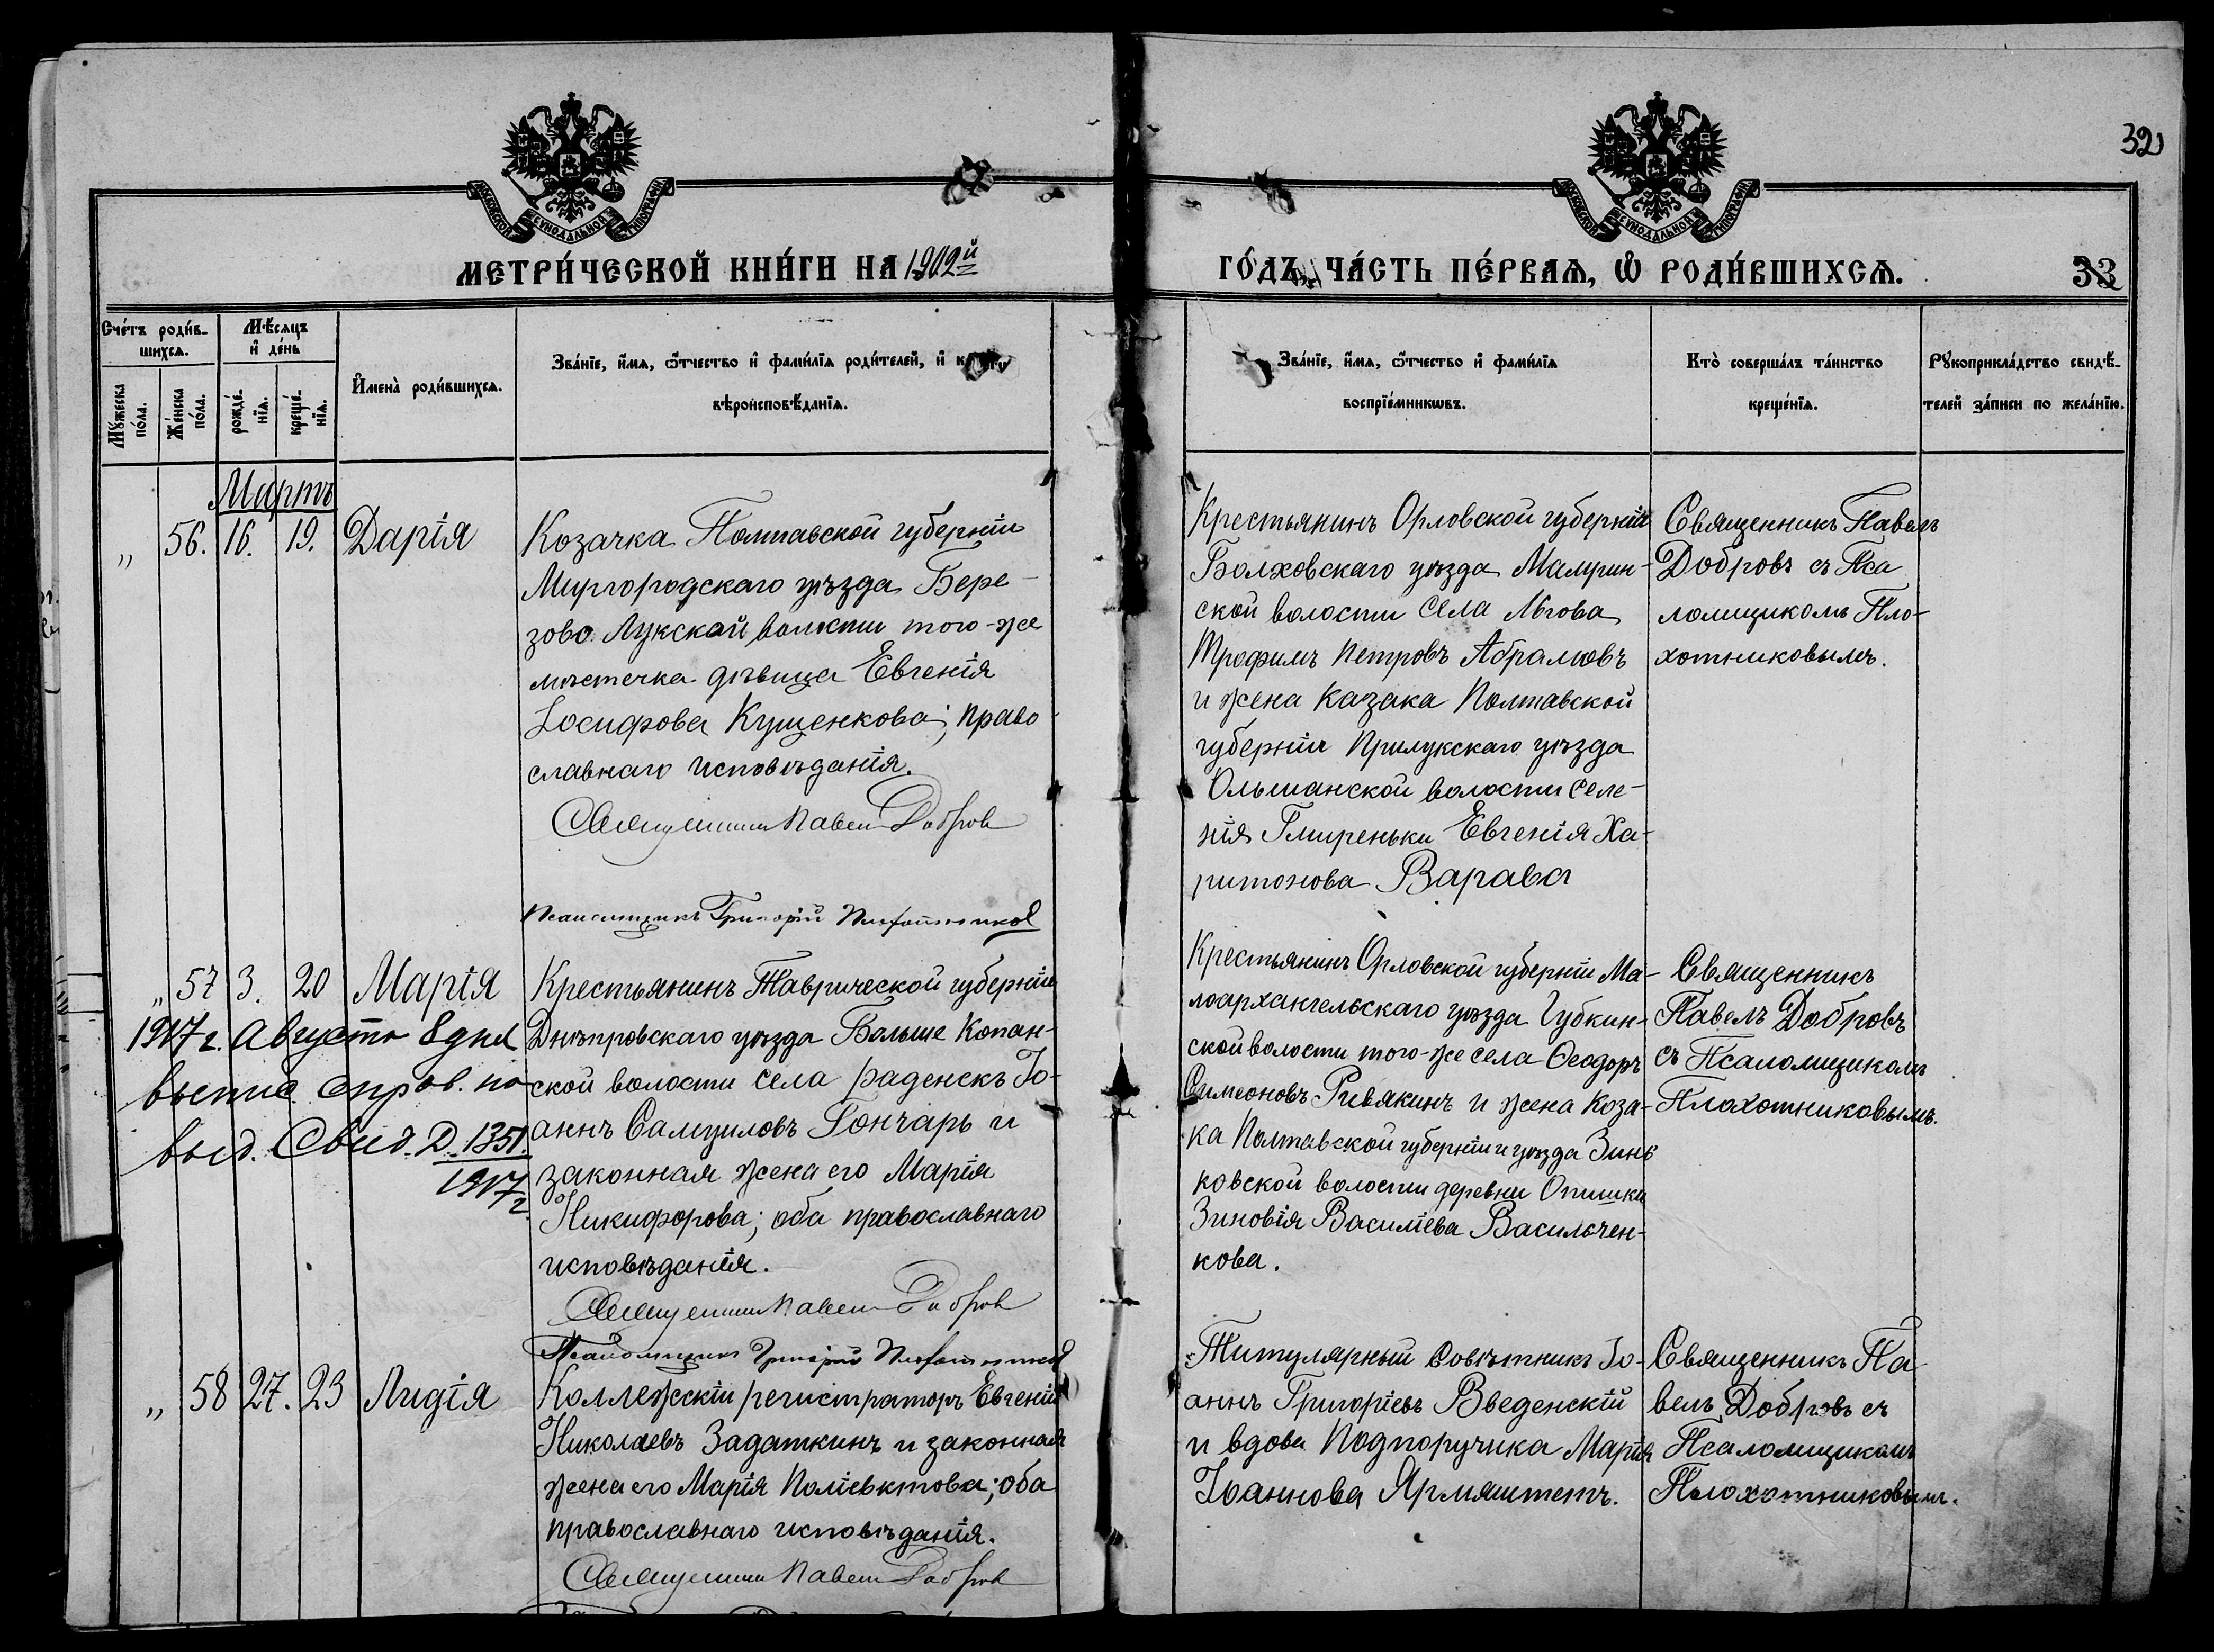 32
МЕТРИ́ЧЕСКОЙ КНИ́ГИ НА 1902й
ГО́ДЪ, ЧА́СТЬ ПЕ́РВАѦ, Ѿ РОДИ́ВШИХСѦ.
33
Сче́тъ роди́в-
шихсѧ.
Мѣ́сѧцъ
и҆ де́нь
Мꙋ́жеска
по́ла.
Же́нска
по́ла.
рожде́-
нїѧ.
креще́-
нїѧ.
И҆мена̀ роди́вшихсѧ.
Зва́нїе, и҆́мѧ, ѻ҆́тчество и҆ фами́лїѧ роди́телей, и҆
вѣроисповѣ́данїѧ.
Зва́нїе, и҆́мѧ, ѻ҆́тчество и҆ фами́лїѧ
воспрїе́мникѡвъ.
Кто̀ соверша́лъ та́инство
креще́нїѧ.
Рꙋкоприкла́дство свидѣ́-
телей за́писи по жела́нїю.
Мартъ
„ 56. 16. 19. Дарія
Козачка Полтавской губерніи
Миргородскаго уѣзда Бере-
зово Лукской волости того-же
мѣстечка дѣвица Евгенія
Іосифова Кущенкова; право-
славнаго исповѣданія.
Священникъ Павелъ Добровъ
Псаломщикъ Григорій Плохотниковъ
Крестьянинъ Орловской губерніи
Болховскаго уѣзда Малурин-
ской волости села Льгова
Трофимъ Петровъ Абрамовъ
и жена казака Полтавской
губерніи Прилукскаго уѣзда
Ольшанской волости селе-
нія Гмиреньки Евгенія Ха-
ритонова Варава
Священникъ Павелъ
Добровъ съ Пса
ломщикомъ Пло-
хотниковымъ.
„ 57 3. 20 Марія
1917 г. Августа 8 дня
выпис. справ. по
выд. Свид. Д. 1351.
1917 г.
Крестьянинъ Таврической губерніи
Днѣпровскаго уѣзда Больше Копан-
ской волости села Раденскъ Іо-
аннъ Самуиловъ Гончаръ и
законная жена его Марія
Никифорова; оба православнаго
исповѣданія.
Священникъ Павелъ Добровъ
Псаломщикъ Григорій Плохотниковъ
Крестьянинъ Орловской губерніи Ма-
лоархангельскаго уѣзда Губкин-
ской волости того-же села Ѳеодоръ
Симеоновъ Ривякинъ и жена коза-
ка Полтавской губерніи и уѣзда Зинь
ковской волости деревни Опишки
Зиновія Василіева Васильчен-
кова.
Священникъ
Павелъ Добровъ
съ Псаломщикомъ
Плохотниковымъ.
„ 58 27. 23 Лидія
Коллежскій регистраторъ Евгеній
Николаевъ Задаткинъ и законная
жена его Марія Поліевктова; оба
православнаго исповѣданія.
Священникъ Павелъ Добровъ
Титулярный Совѣтникъ Іо-
аннъ Григоріевъ Введенскій
и вдова Подпоручика Марія
Іоаннова Ярмяштетъ.
Священникъ Па-
велъ Добровъ съ
Псаломщикомъ
Плохотниковымъ.